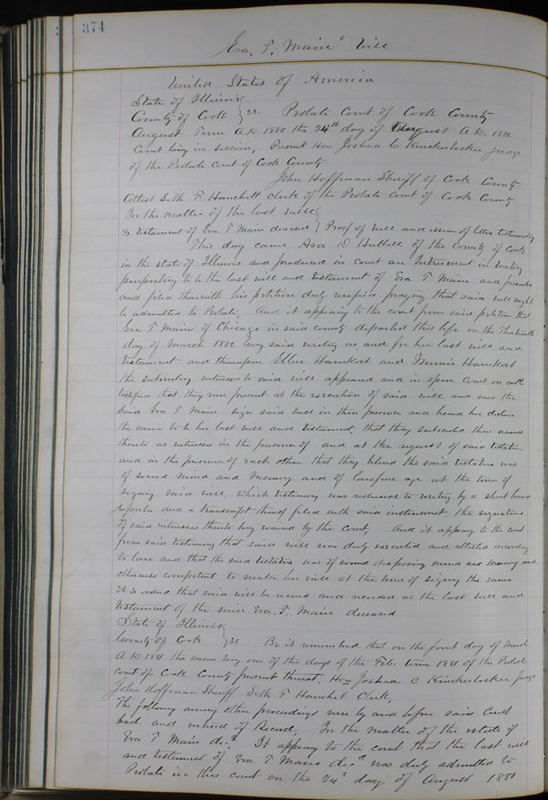 374
Eva. T. Main's Will
United States of America
State of Illinois
County of Cook } SS. Probate Court of Cook County
August Term A.D. 1880 the 24th day of August A.D. 1880.
Court being in session, Present Hon Joshua C. Knickerbocker Judge
of the Probate Court of Cook County
John Hoffman Sheriff of Cook County
Attest Seth F. Hanchett Clerk of the Probate Court of Cook County
In the matter of the last will
& testament of Eva T Main deceased } Proof of will and issue of letters testamentary
This day came Asa D Hulbell of the County of Cook
in the state of Illinois and produced in Court an Instrument in writing
purporting to be the last will and testament of Eva T Main and presents
and files therewith his petition duly verified praying that said will might
be admitted to Probate. And it appearing to the court from said petition that
Eva T Main of Chicago in said county departed this life on the Thirteenth
day of March 1880 leaving said writing as, and for her last will and
testament and thereupon Ellen Hamkost and Minnie Hamkost
the subscribing witnesses to said will appeared and in open Court on oath
testified that they were present at the execution of said will and saw the
said Eva T Main sign said will in their presence and heard her declare
the same to be her last will and testament, that they subscribed their names
thereto as witnesses in the presence of and at the request of said testatrix
and in the presence of each other that they believed the said testatrix was
of sound mind and memory and of lawful age at the time of
signing said will, which testimony was reduced to writing by a short hand
reporter and a transcript thereof filed with said instrument, the signature
of said witnesses thereto being waived by the Court. And it appearing to the court
from said testimony that said will was duly executed and attested according
to law and that the said testatrix was of sound disposing mind and memory and
otherwise competent to make his will at the time of signing the same
it is ordered that said will be record and recorded as the last will and
testament of the said Eva. T. Main deceased
State of Illinois
County of Cook } SS Be it remembered that on the first day of March
A.D 1881 the same being one of the days of the Feb. term 1881 of the Probate
court of Cook County present thereat, Hon Joshua C Knickerbocker Judge
John Hoffman Sheriff Seth F. Hanchett Clerk,
The following among other proceedings were by and before said Court
had and entered of Record. In the matter of the estate of
Eva T Main decd. It appearing to the court that the last will
and testament of Eva T Main decd was duly admitted to
Probate in this court on the 24th day of August 1880